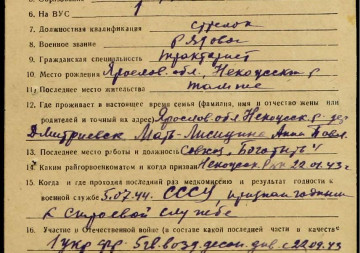 6. На ВУС 1
7. Должностная квалификация стрелок
8. Военное звание рядовой
9. Гражданская специальность тракторист
10. Место рождения Ярослов. обл., Некоузский р
11. Последнее место жительства там же
12. Где проживает в настоящее время семья (фамилия, имя и отчество жены или
родителей и точный их адрес) Ярослов. обл Некоузск. р. дер
Дмитриевск Мать-Лисицина Анна Павл.
13. Последнее место работы и должность Совхоз
14. Каким райгорвоенкоматом и когда призван Некоузск. Рвк 22.07.43 г.
15. Когда и где проходил последний раз медкомиссию и результат годности к
военной службе 5.07.44. СССР, признан годным
к строевой службе
16. Участие в Отечественной войне (в составе какой последней части и качестве)
1 укр фр. 5 гв. возд. десан. див. с 22.09.43